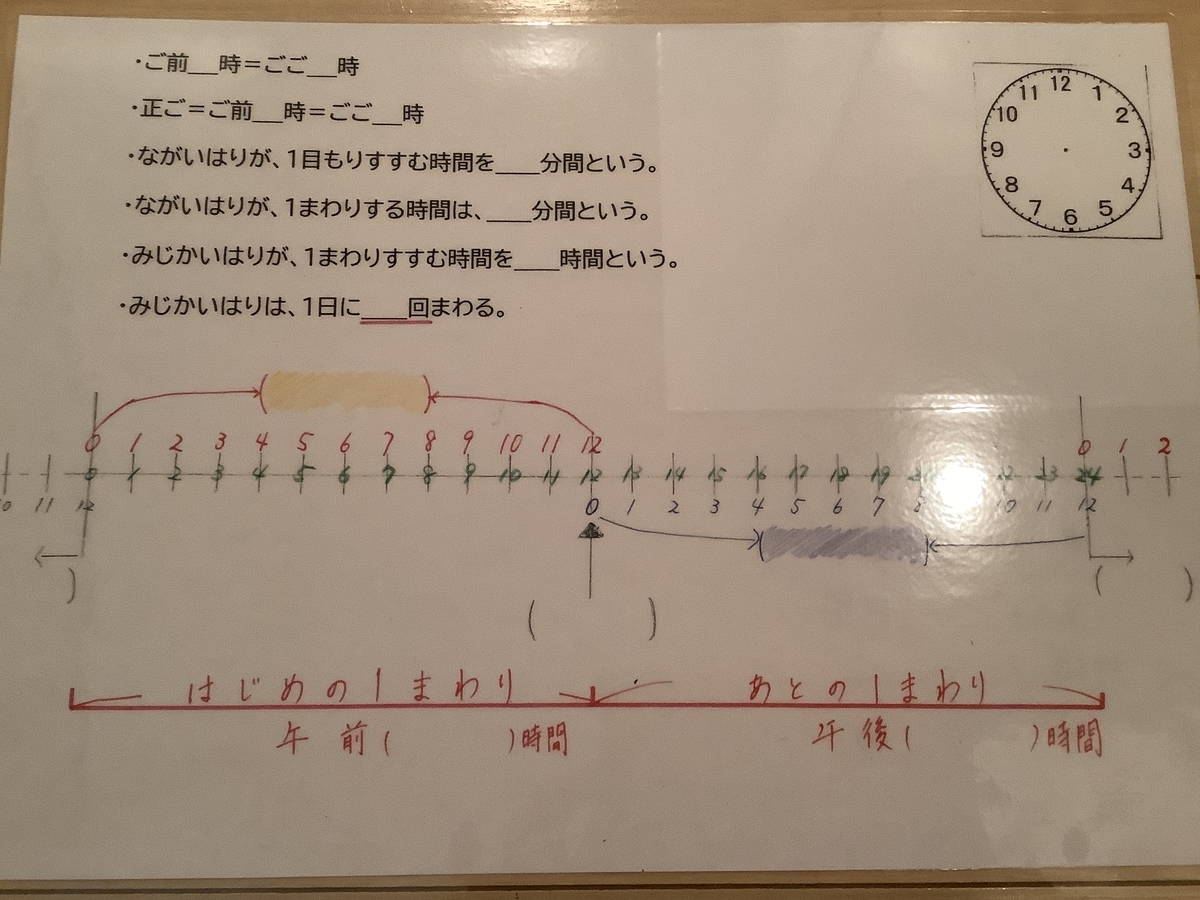 ・ご前__時＝ごご__時
・正ご＝ご前__時＝ごご__時
・ながいはりが、1目もりすすむ時間を___分間という。
・ながいはりが、1まわりする時間は、___分間という。
・みじかいはりが、1まわりすすむ時間を___時間という。
・みじかいはりは、1日に___回まわる。
12 1 2 3 4 5 6 7 8 9 10 11
0 1 2 3 4 5 6 7 8 9 10 11 12 0 1 2
0 1 2 3 4 5 6 7 8 9 10 11 12 13 14 15 16 17 18 19 23 24
10 11 12 0 1 2 3 4 5 6 7 8 10 11 12
) ( )
( )
はじめの1まわり あとの1まわり
午前( )時間 午後( )時間